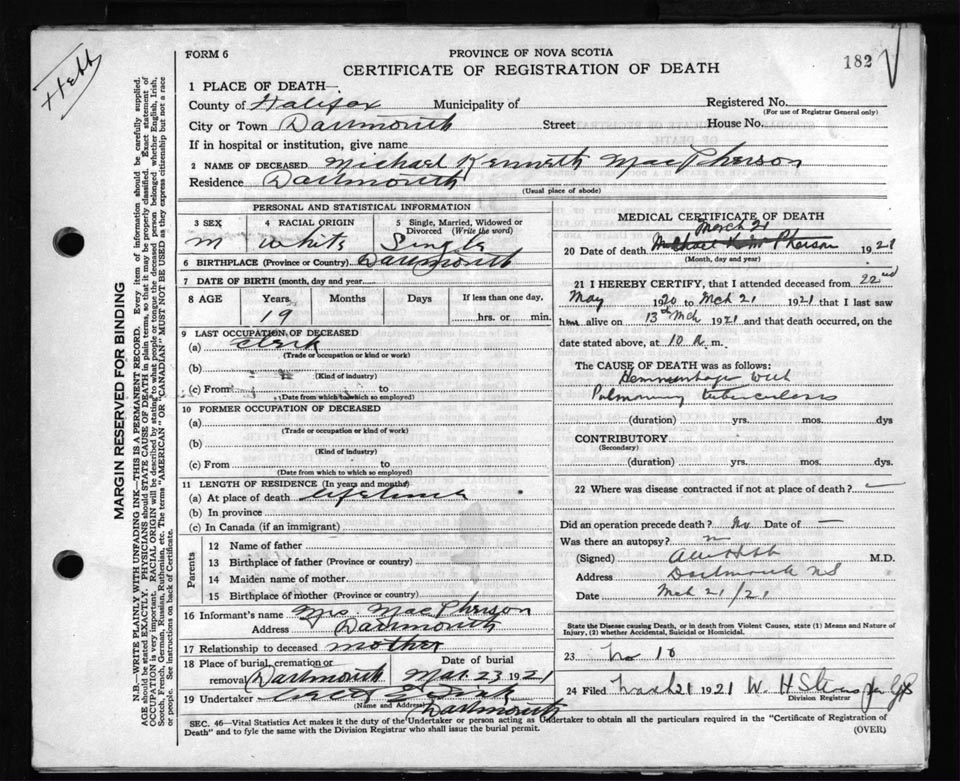 Hebb
FORM 6
PROVINCE OF NOVA SCOTIA
182
CERTIFICATE OF REGISTRATION OF DEATH
1 PLACE OF DEATH—
County of Halifax Municipality of Registered No.
(For use of Registrar General only)
City or Town Dartmouth Street House No.
If in hospital or institution, give name
2 NAME OF DECEASED Michael Kenneth MacPherson
Residence Dartmouth
(Usual place of abode)
PERSONAL AND STATISTICAL INFORMATION
3 SEX 4 RACIAL ORIGIN 5 Single, Married, Widowed or Divorced (Write the word)
M White Single
6 BIRTHPLACE (Province or Country) Dartmouth
7 DATE OF BIRTH (month, day and year)
8 AGE Years Months Days If less than one day,
19 hrs. or min.
9 LAST OCCUPATION OF DECEASED
(a) Clerk
(Trade or occupation or kind or work)
(b)
(Kind of industry)
(c) From to
(Date from which to which so employed)
10 FORMER OCCUPATION OF DECEASED
(a)
(Trade or occupation or kind of work)
(b)
(Kind of industry)
(c) From to
(Date from which to which so employed)
11 LENGTH OF RESIDENCE (In years and months)
(a) At place of death lifetime
(b) In province
(c) In Canada (if an immigrant)
Parents
12 Name of father
13 Birthplace of father (Province or country)
14 Maiden name of mother
15 Birthplace of mother (Province or country)
16 Informant's name Mrs. MacPherson
Address Dartmouth
17 Relationship to deceased mother
18 Place of burial, cremation or removal Dartmouth Date of burial Mar. 23 1921
19 Undertaker
(Name and Address) Dartmouth
MEDICAL CERTIFICATE OF DEATH
March 21
20 Date of death 1921
(Month, day and year)
21 I HEREBY CERTIFY, that I attended deceased from 22nd
May 1920 to Mch 21 1921 that I last saw
him alive on 13th Mch 1921 and that death occurred, on the
date stated above, at 10 a. m.
The CAUSE OF DEATH was as follows:
Hemmorrhage with
Pulmonary tuberculosis
(duration) yrs. mos. dys
CONTRIBUTORY
(Secondary)
(duration) yrs. mos. dys.
22 Where was disease contracted if not at place of death? —
Did an operation precede death? No Date of —
Was there an autopsy? n
(Signed) M.D.
Address Dartmouth NS
Date Mch 21/21
State the Disease causing Death, or in death from Violent Causes, state (1) Means and Nature of
Injury, (2) whether Accidental, Suicidal or Homicidal.
23 No 10
24 Filed March 21 1921 W. H
Division Registrar
SEC. 46—Vital Statistics Act makes it the duty of the Undertaker or person acting as Undertaker to obtain all the particulars required in the "Certificate of Registration of
Death" and to fyle the same with the Division Registrar who shall issue the burial permit. (OVER)
MARGIN RESERVED FOR BINDING
N.B.—WRITE PLAINLY WITH UNFADING INK—THIS IS A PERMANENT RECORD. Every item of information should be carefully supplied.
AGE should be stated EXACTLY. PHYSICIANS should STATE CAUSE OF DEATH in plain terms, so that it may be properly classified. Exact statement of
OCCUPATION is very important. RACIAL ORIGIN will be described by stating to what people or tongue the deceased person belonged whether English, Irish,
Scotch, French, German, Russian, Ruthenian, etc. The terms "AMERICAN" OR "CANADIAN" MUST NOT BE USED as they express citizenship but not a race
or people. See instructions on back of Certificate.